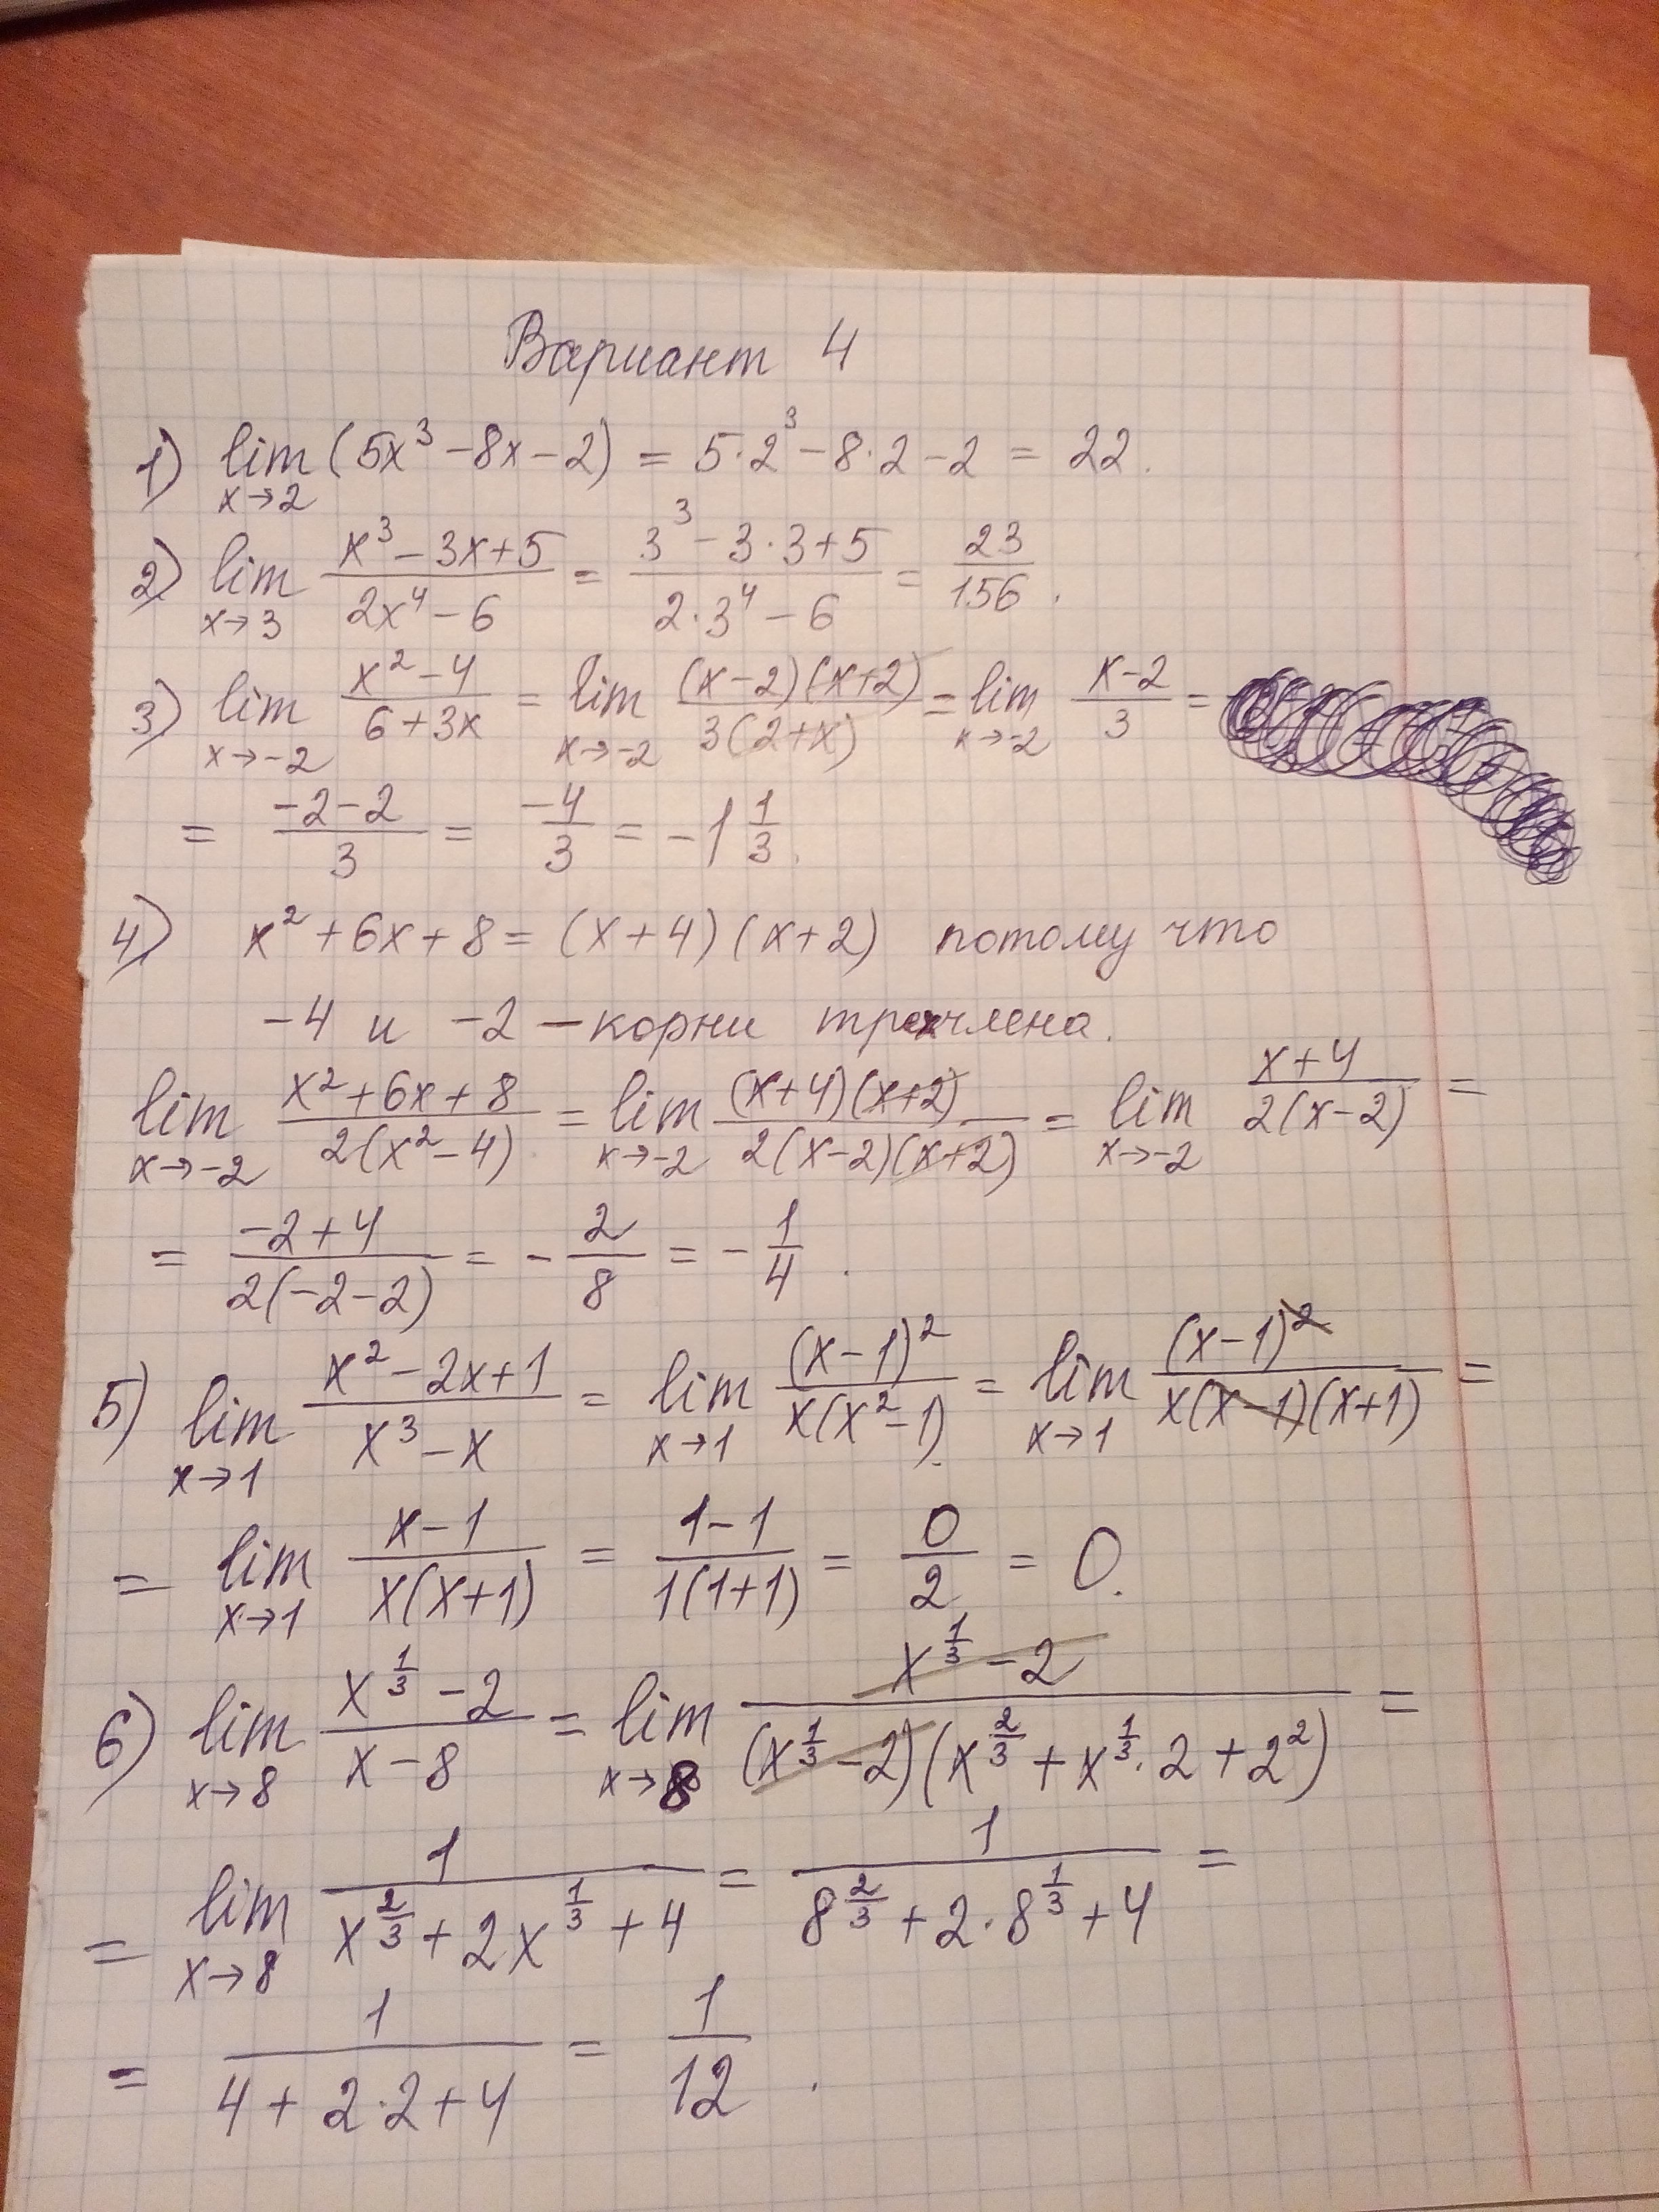 Вариант 4
1) lim (5x³ - 8x - 2) = 5·2³ - 8·2 - 2 = 22.
x→2
2) lim (x³ - 3x + 5)/(2x⁴ - 6) = (3³ - 3·3 + 5)/(2·3⁴ - 6) = 23/156.
x→3
3) lim (x² - 4)/(6 + 3x) = lim ((x-2)(x+2))/(3(2+x)) = lim (x-2)/3 =
x→-2 x→-2 x→-2
= (-2-2)/3 = -4/3 = -1 1/3.
4) x² + 6x + 8 = (x+4)(x+2) потому что
-4 и -2 – корни трехчлена.
lim (x² + 6x + 8)/(2(x² - 4)) = lim ((x+4)(x+2))/(2(x-2)(x+2)) = lim (x+4)/(2(x-2)) =
x→-2 x→-2 x→-2
= (-2+4)/(2(-2-2)) = -2/8 = -1/4.
5) lim (x² - 2x + 1)/(x³ - x) = lim (x-1)²/(x(x²-1)) = lim (x-1)²/(x(x-1)(x+1)) =
x→1 x→1 x→1
= lim (x-1)/(x(x+1)) = (1-1)/(1(1+1)) = 0/2 = 0.
x→1
6) lim (x^(1/3) - 2)/(x - 8) = lim (x^(1/3) - 2)/((x^(1/3) - 2)(x^(2/3) + x^(1/3)·2 + 2²)) =
x→8 x→8
= lim 1/(x^(2/3) + 2x^(1/3) + 4) = 1/(8^(2/3) + 2·8^(1/3) + 4) =
x→8
= 1/(4 + 2·2 + 4) = 1/12.